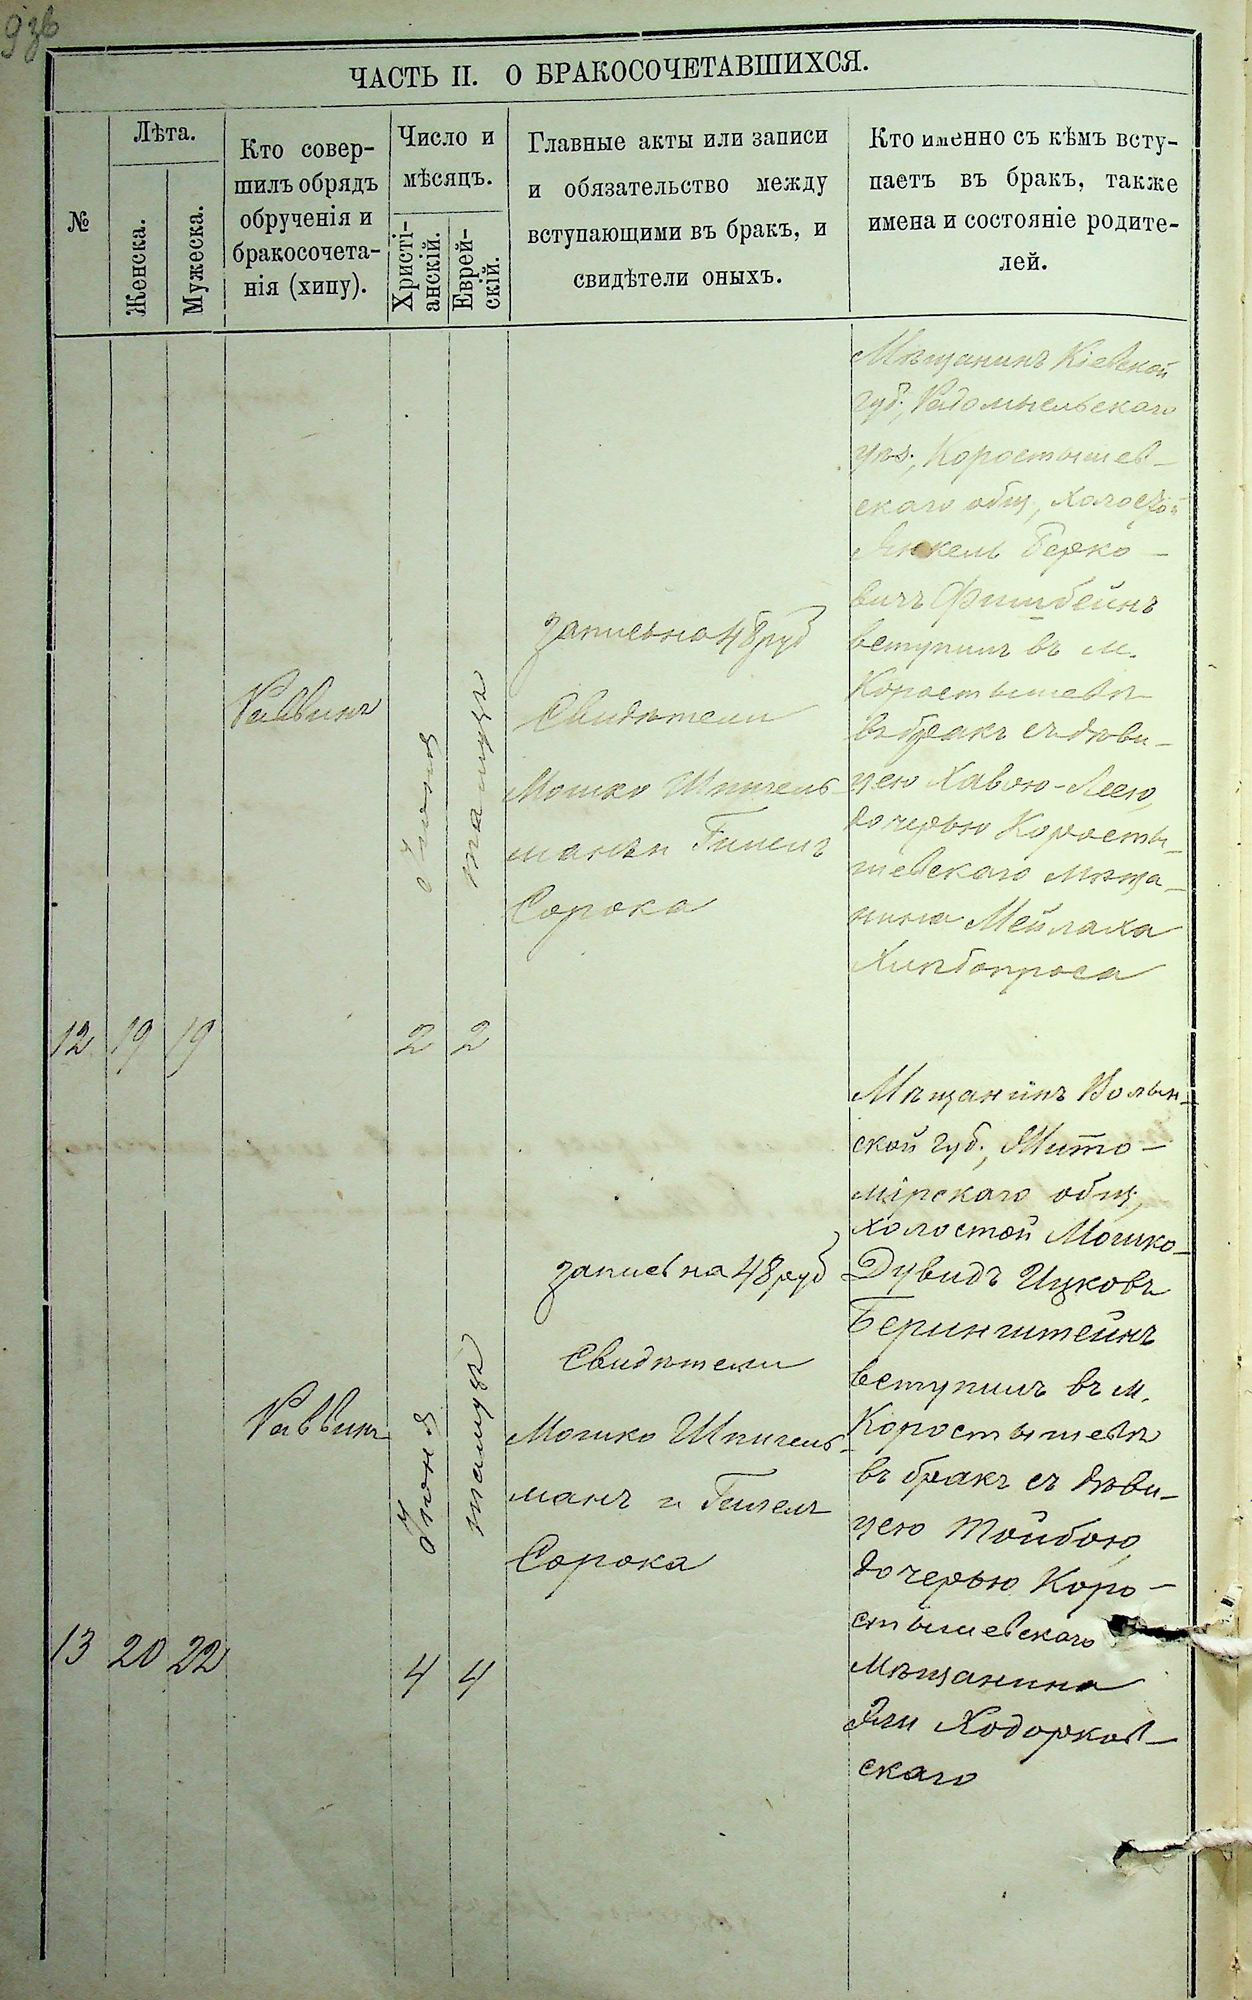 ЧАСТЬ II. О БРАКОСОЧЕТАВШИХСЯ.
№
Лѣта.
Женска.
Мужеска.
Кто совер-
шилъ обрядъ
обрученія и
бракосочета-
нія (хипу).
Число и
мѣсяцъ.
Христі-
анскій.
Еврей-
скій.
Главные акты или записи
и обязательство между
вступающими въ бракъ, и
свидѣтели оныхъ.
Кто именно съ кѣмъ всту-
паетъ въ бракъ, также
имена и состояніе родите-
лей.
12
19
19
Раввинъ
Іюня
2
тамуза
2
запись на 48 руб
Свидѣтели
Мошко Шпигель-
манъ и Гилель
Сорока
Мѣщанинъ Кіевской
губ., Радомысльскаго
уѣз., Коростышев-
скаго общ., холостой
Янкель Берко-
вичъ Фишбейнъ
вступилъ въ м.
Коростышевѣ
въ бракъ съ дѣви-
цею Хавою-Леею,
дочерью Коросты-
шевскаго мѣща-
нина Мейлаха
Хлѣбопроса
13
20
22
Раввинъ
Іюня
4
тамуза
4
запись на 48 руб
Свидѣтели
Мошко Шпигель-
манъ и Гилель
Сорока
Мѣщанинъ Волын-
ской губ., Жито-
мірскаго общ.,
холостой Мошко-
Дувидъ Ицковъ
Беринштейнъ
вступилъ въ м.
Коростышевѣ
въ бракъ съ дѣви-
цею Тойбою,
дочерью Коро-
стышевскаго
мѣщанина
Эли Ходорков-
скаго